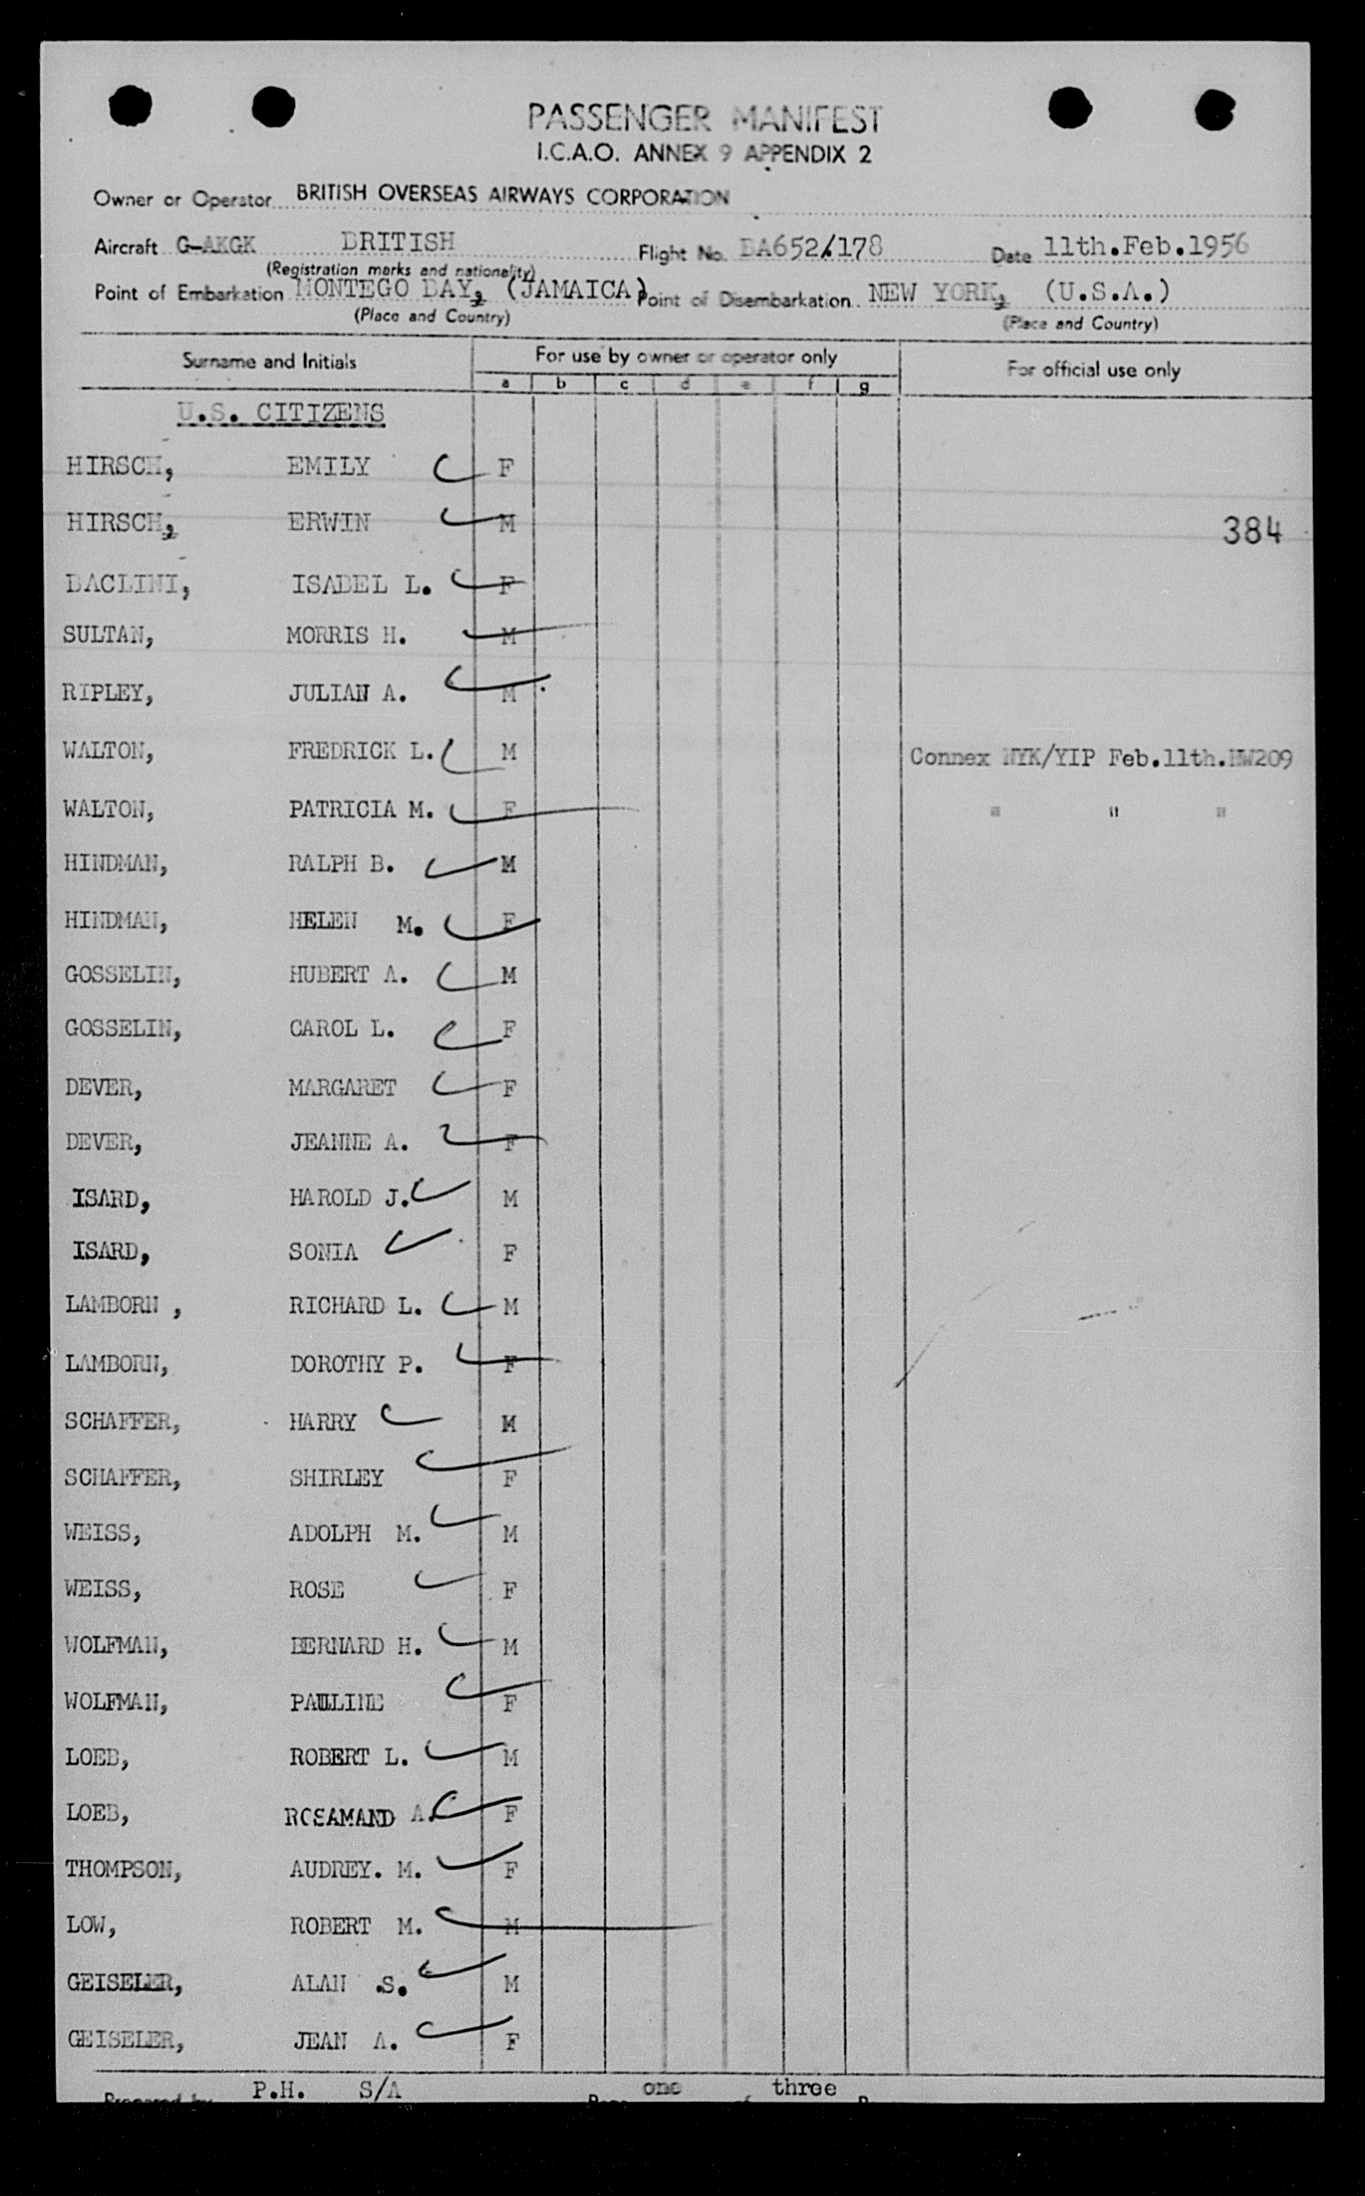 PASSENGER MANIFEST
I.C.A.O. ANNEX 9 APPENDIX 2
Owner or Operator BRITISH OVERSEAS AIRWAYS CORPORATION
Aircraft G-AKGK BRITISH Flight No. BA652/178 Date 11th.Feb.1956
(Registration marks and nationality)
Point of Embarkation MONTEGO BAY, (JAMAICA) Point of Disembarkation NEW YORK, (U.S.A.)
(Place and Country) (Place and Country)
Surname and Initials For use by owner or operator only For official use only
a b c d e f g
U.S. CITIZENS
HIRSCH, EMILY F
HIRSCH, ERWIN M 384
BACLINI, ISABEL L. F
SULTAN, MORRIS H. M
RIPLEY, JULIAN A. M
WALTON, FREDRICK L. M Connex NYK/YIP Feb.11th.NW209
WALTON, PATRICIA M. F " " "
HINDMAN, RALPH B. M
HINDMAN, HELEN M. F
GOSSELIN, HUBERT A. M
GOSSELIN, CAROL L. F
DEVER, MARGARET F
DEVER, JEANNE A. F
ISARD, HAROLD J. M
ISARD, SONIA F
LAMBORN , RICHARD L. M
LAMBORN, DOROTHY P. F
SCHAFFER, HARRY M
SCHAFFER, SHIRLEY F
WEISS, ADOLPH M. M
WEISS, ROSE F
WOLFMAN, BERNARD H. M
WOLFMAN, PAULINE F
LOEB, ROBERT L. M
LOEB, ROSAMAND A. F
THOMPSON, AUDREY. M. F
LOW, ROBERT M. M
GEISELER, ALAN .S. M
GEISELER, JEAN A. F
P.H. S/A one three